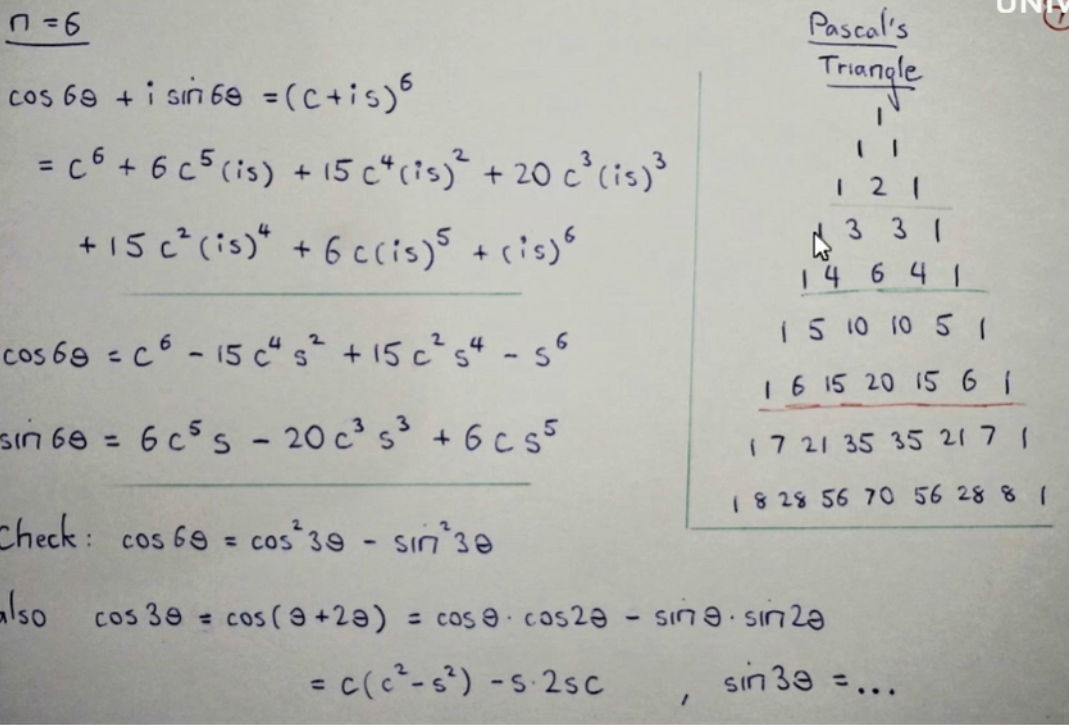 n = 6
cos 6θ + i sin 6θ = (c + is)⁶
= c⁶ + 6c⁵(is) + 15c⁴(is)² + 20c³(is)³
+ 15c²(is)⁴ + 6c(is)⁵ + (is)⁶
cos 6θ = c⁶ - 15c⁴s² + 15c²s⁴ - s⁶
sin 6θ = 6c⁵s - 20c³s³ + 6cs⁵
Check: cos 6θ = cos²3θ - sin²3θ
also cos 3θ = cos(θ + 2θ) = cos θ · cos 2θ - sin θ · sin 2θ
= c(c² - s²) - s · 2sc , sin 3θ = ...
Pascal's
Triangle
1
1 1
1 2 1
1 3 3 1
1 4 6 4 1
1 5 10 10 5 1
1 6 15 20 15 6 1
1 7 21 35 35 21 7 1
1 8 28 56 70 56 28 8 1